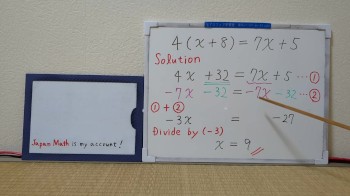 4(x+8)=7x+5
Solution
4x +32 = 7x + 5 ...①
-7x -32 = -7x -32 ...②
① + ②
-3x = -27
Divide by (-3)
x = 9
Japan Math is my account!